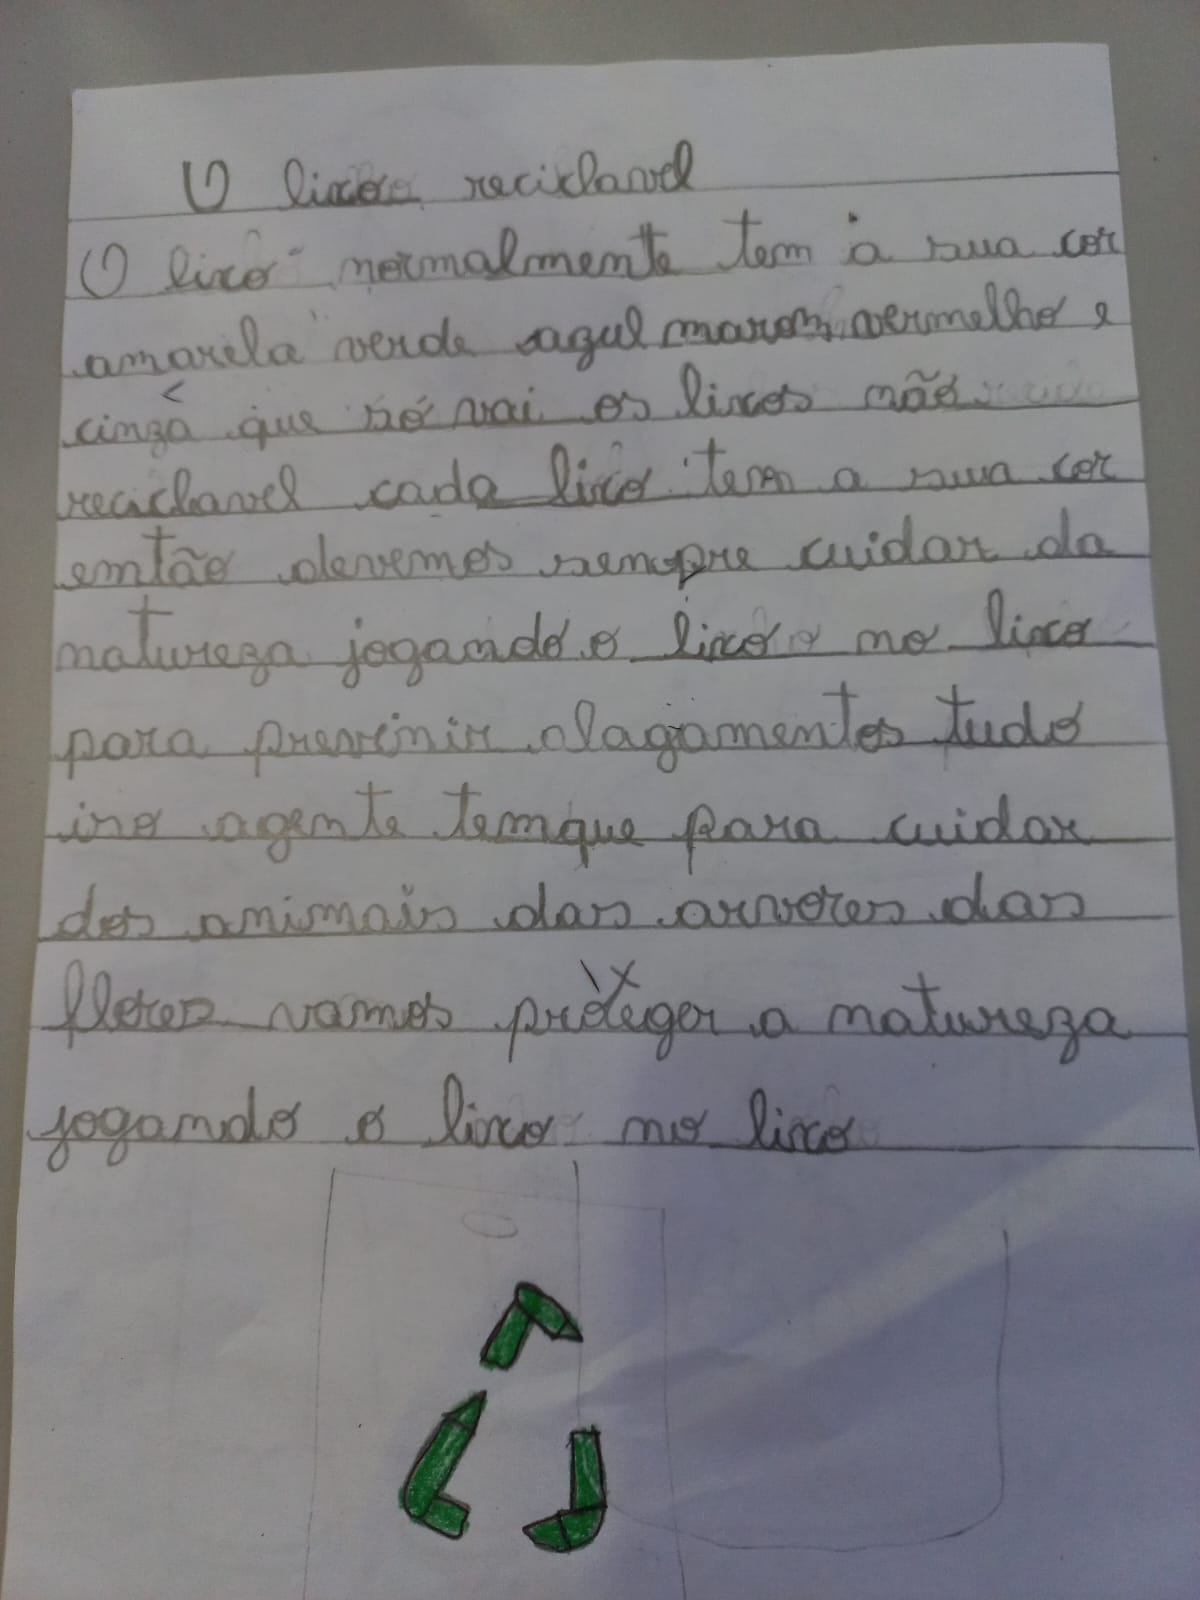 O lixo reciclavel
O lixo normalmente tem a sua cor
amarela verde azul marom vermelho e
cinza que só vai os lixos não
reciclavel cada lixo tem a sua cor
emtão devemos sempre cuidar da
natureza jogando o lixo no lixo
para previnir alagamentos tudo
iso agente temque para cuidar
dos animais das arvores das
flores vamos proteger a natureza
jogando o lixo no lixo